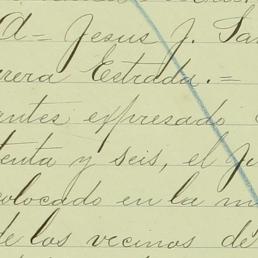 A= Jesus J. Sa
rera Estrada.=
antes expresado
tenta y seis, el Ju
olocado en la m
de los vecinos de